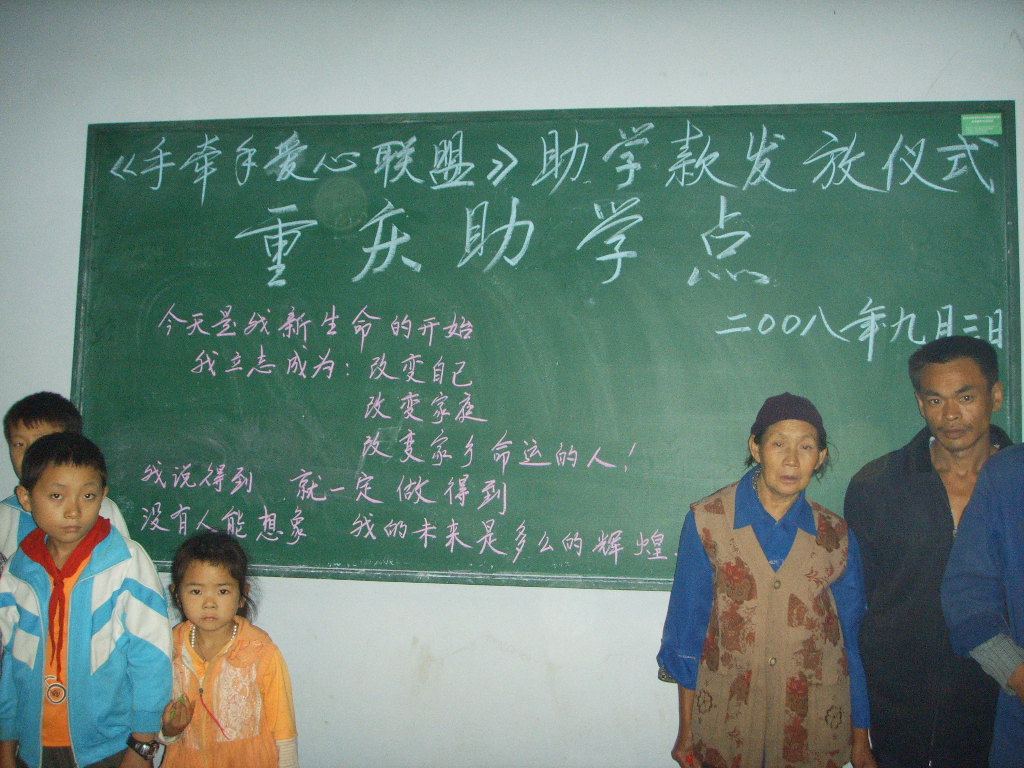 《手牵手爱心联盟》助学款发放仪式
重庆助学点
二00八年九月三日
今天是我新生命的开始
我立志成为：改变自己
改变家庭
改变家乡命运的人！
我说得到 就一定做得到
没有人能想象 我的未来是多么的辉煌.